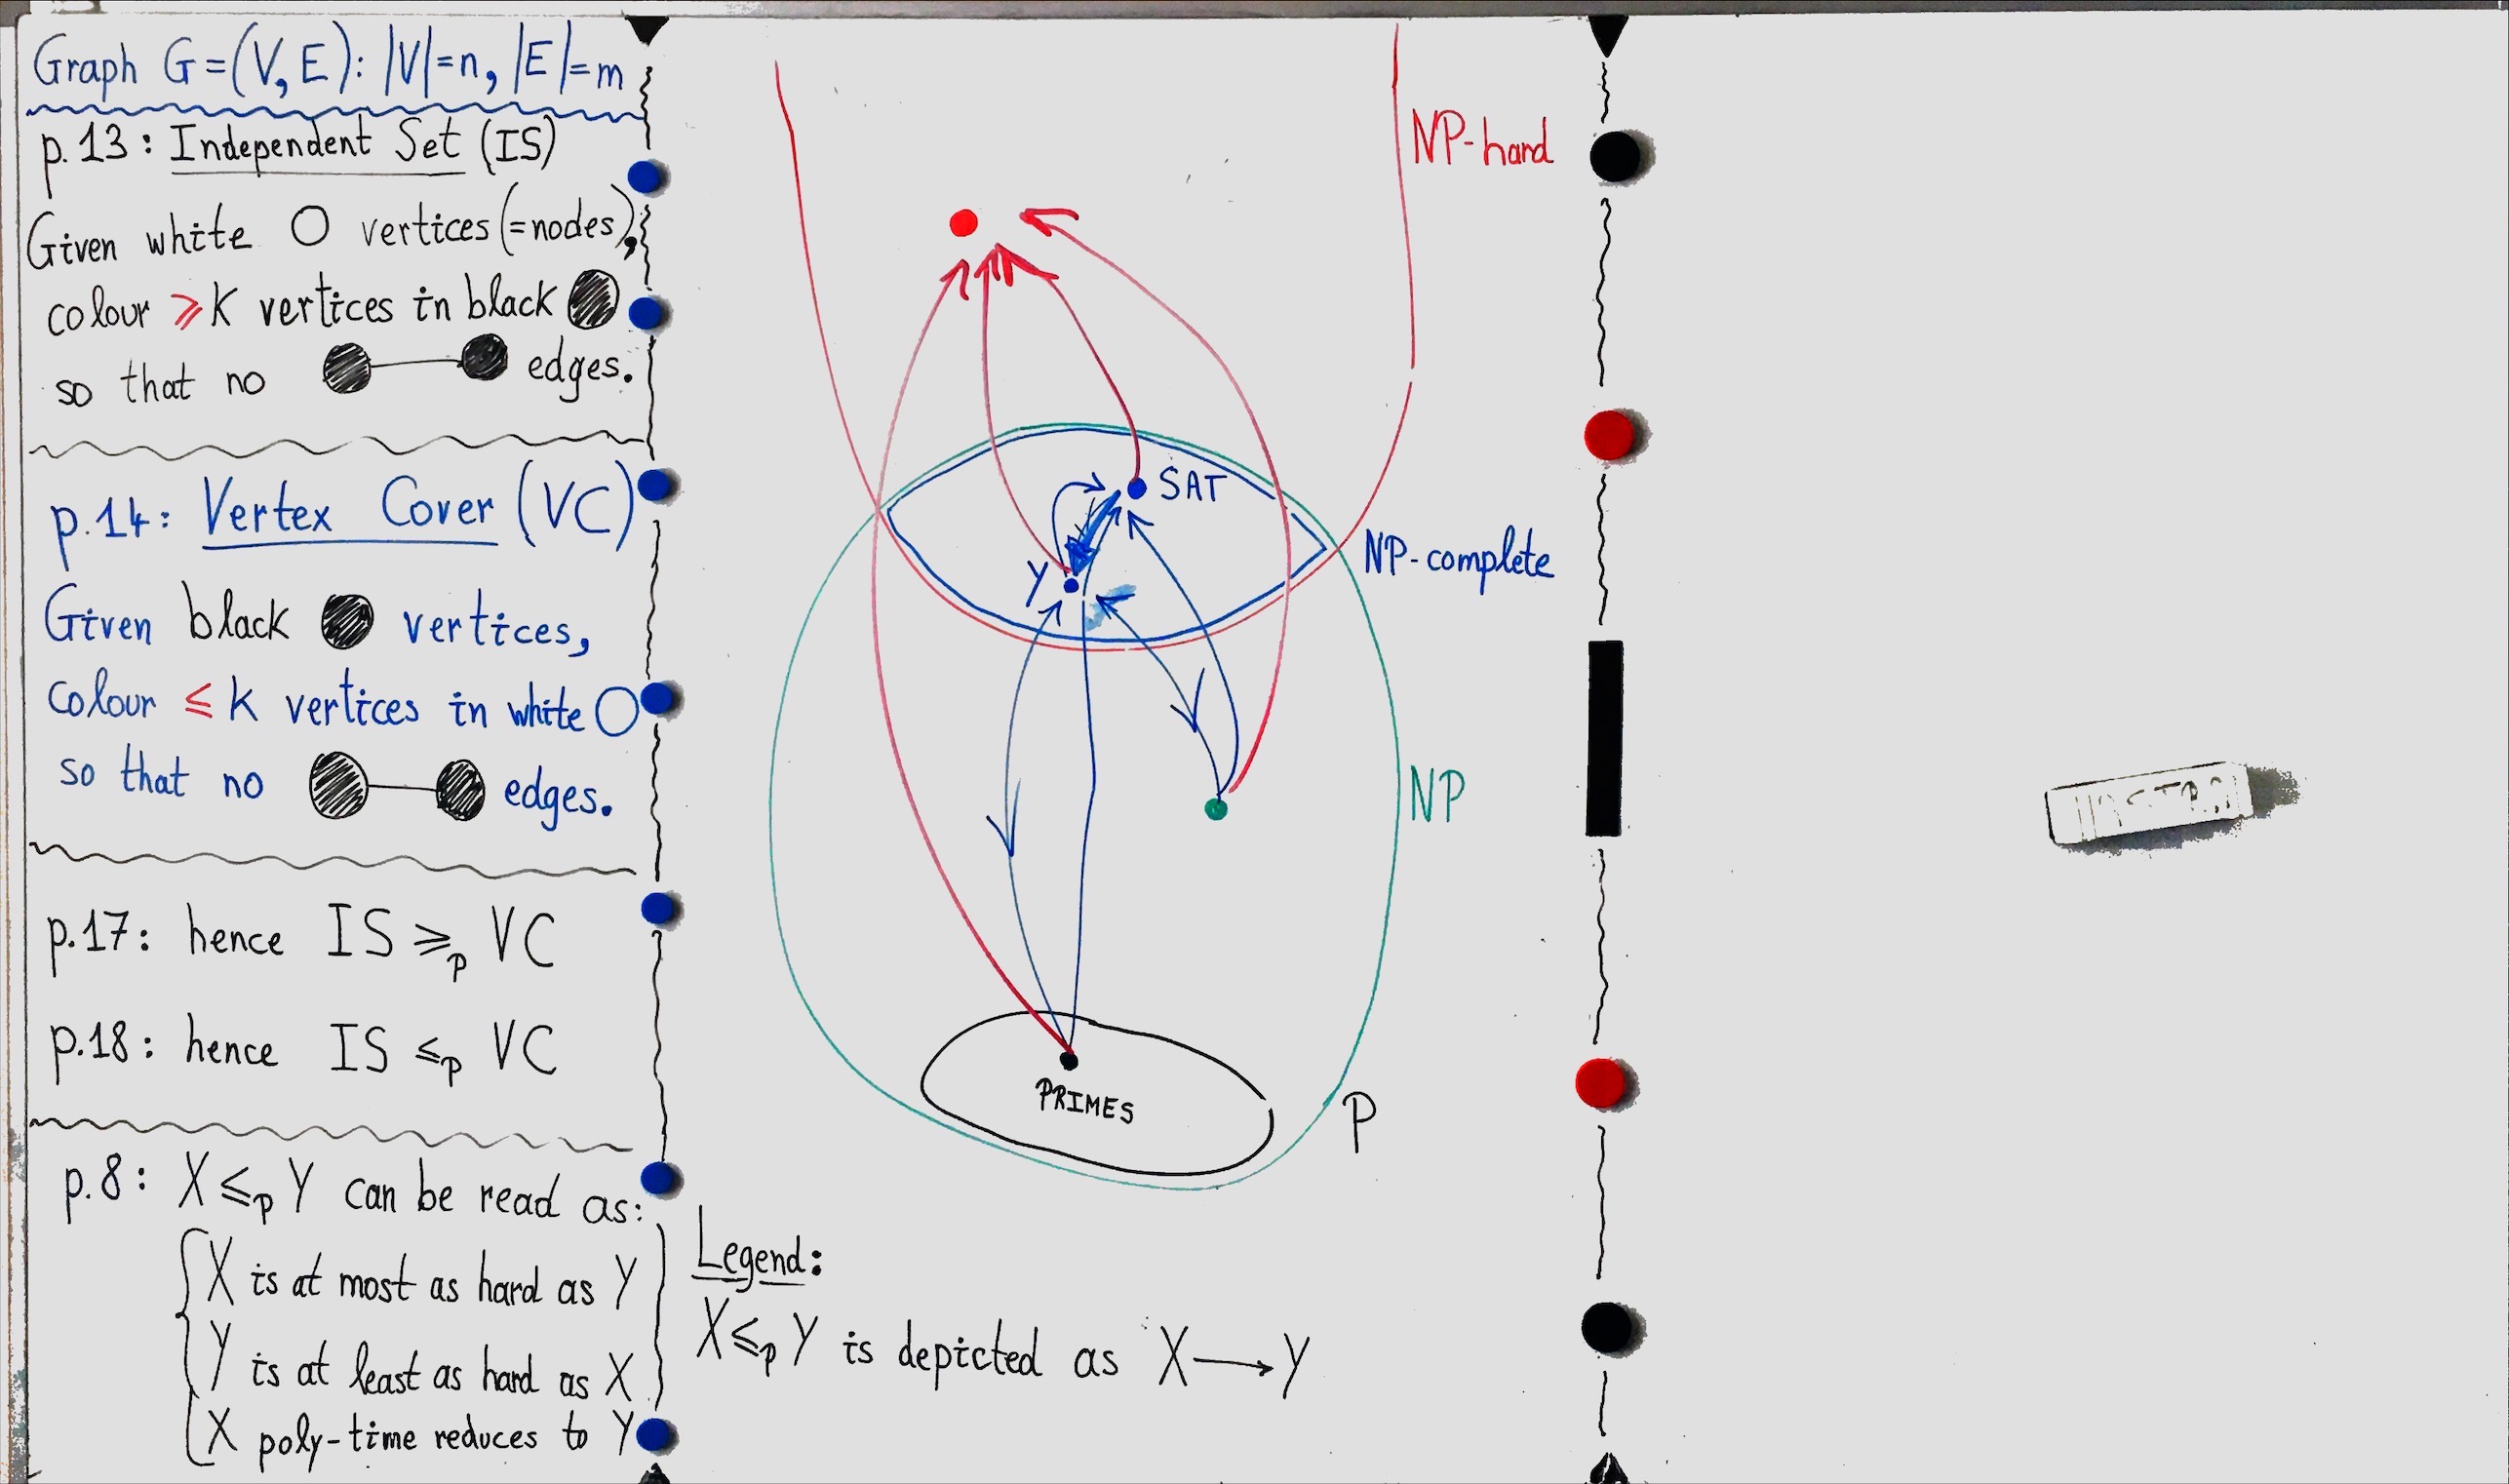 Graph G=(V,E): |V|=n, |E|=m
p.13: Independent Set (IS)
Given white vertices (=nodes),
colour ⩾K vertices in black
so that no edges.
p.14: Vertex Cover (VC)
Given black vertices,
colour ≤K vertices in white
so that no edges.
p.17: hence IS ⩾p VC
p.18: hence IS ≤p VC
p.8: X ≤p Y can be read as:
X is at most as hard as Y
Y is at least as hard as X
X poly-time reduces to Y
NP-hard
SAT
Y
NP-complete
NP
PRIMES
P
Legend:
X ≤p Y is depicted as X → Y